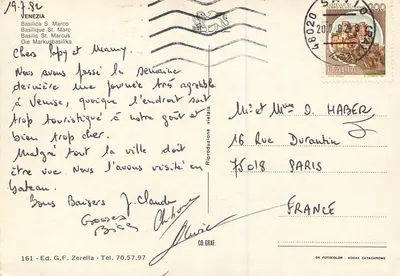 19.7.82
VENEZIA
Basilica S. Marco
Basilique St. Marc
Basilic St. Marcus
Die Markusbasilika
Chers Papy et Mamy.
Nous avons passé la semaine
dernière une journée très agréable
à Venise, quoique l'endroit soit
trop touristique à notre goût et
bien trop cher.
Malgré tout la ville doit
être vue. Nous l'avons visité en
bateau.
Bons Baisers J. Claude
Grosses
Bises
161 - Ed. G.F. Zerella - Tel. 70.57.97
CO. GRAF.
Riproduzione vietata
48020
ITALIA
Mr et Mme D. HABER
16 Rue Durantin
75018 PARIS
FRANCE
DA FOTOCOLOR - KODAK EKTACHROME